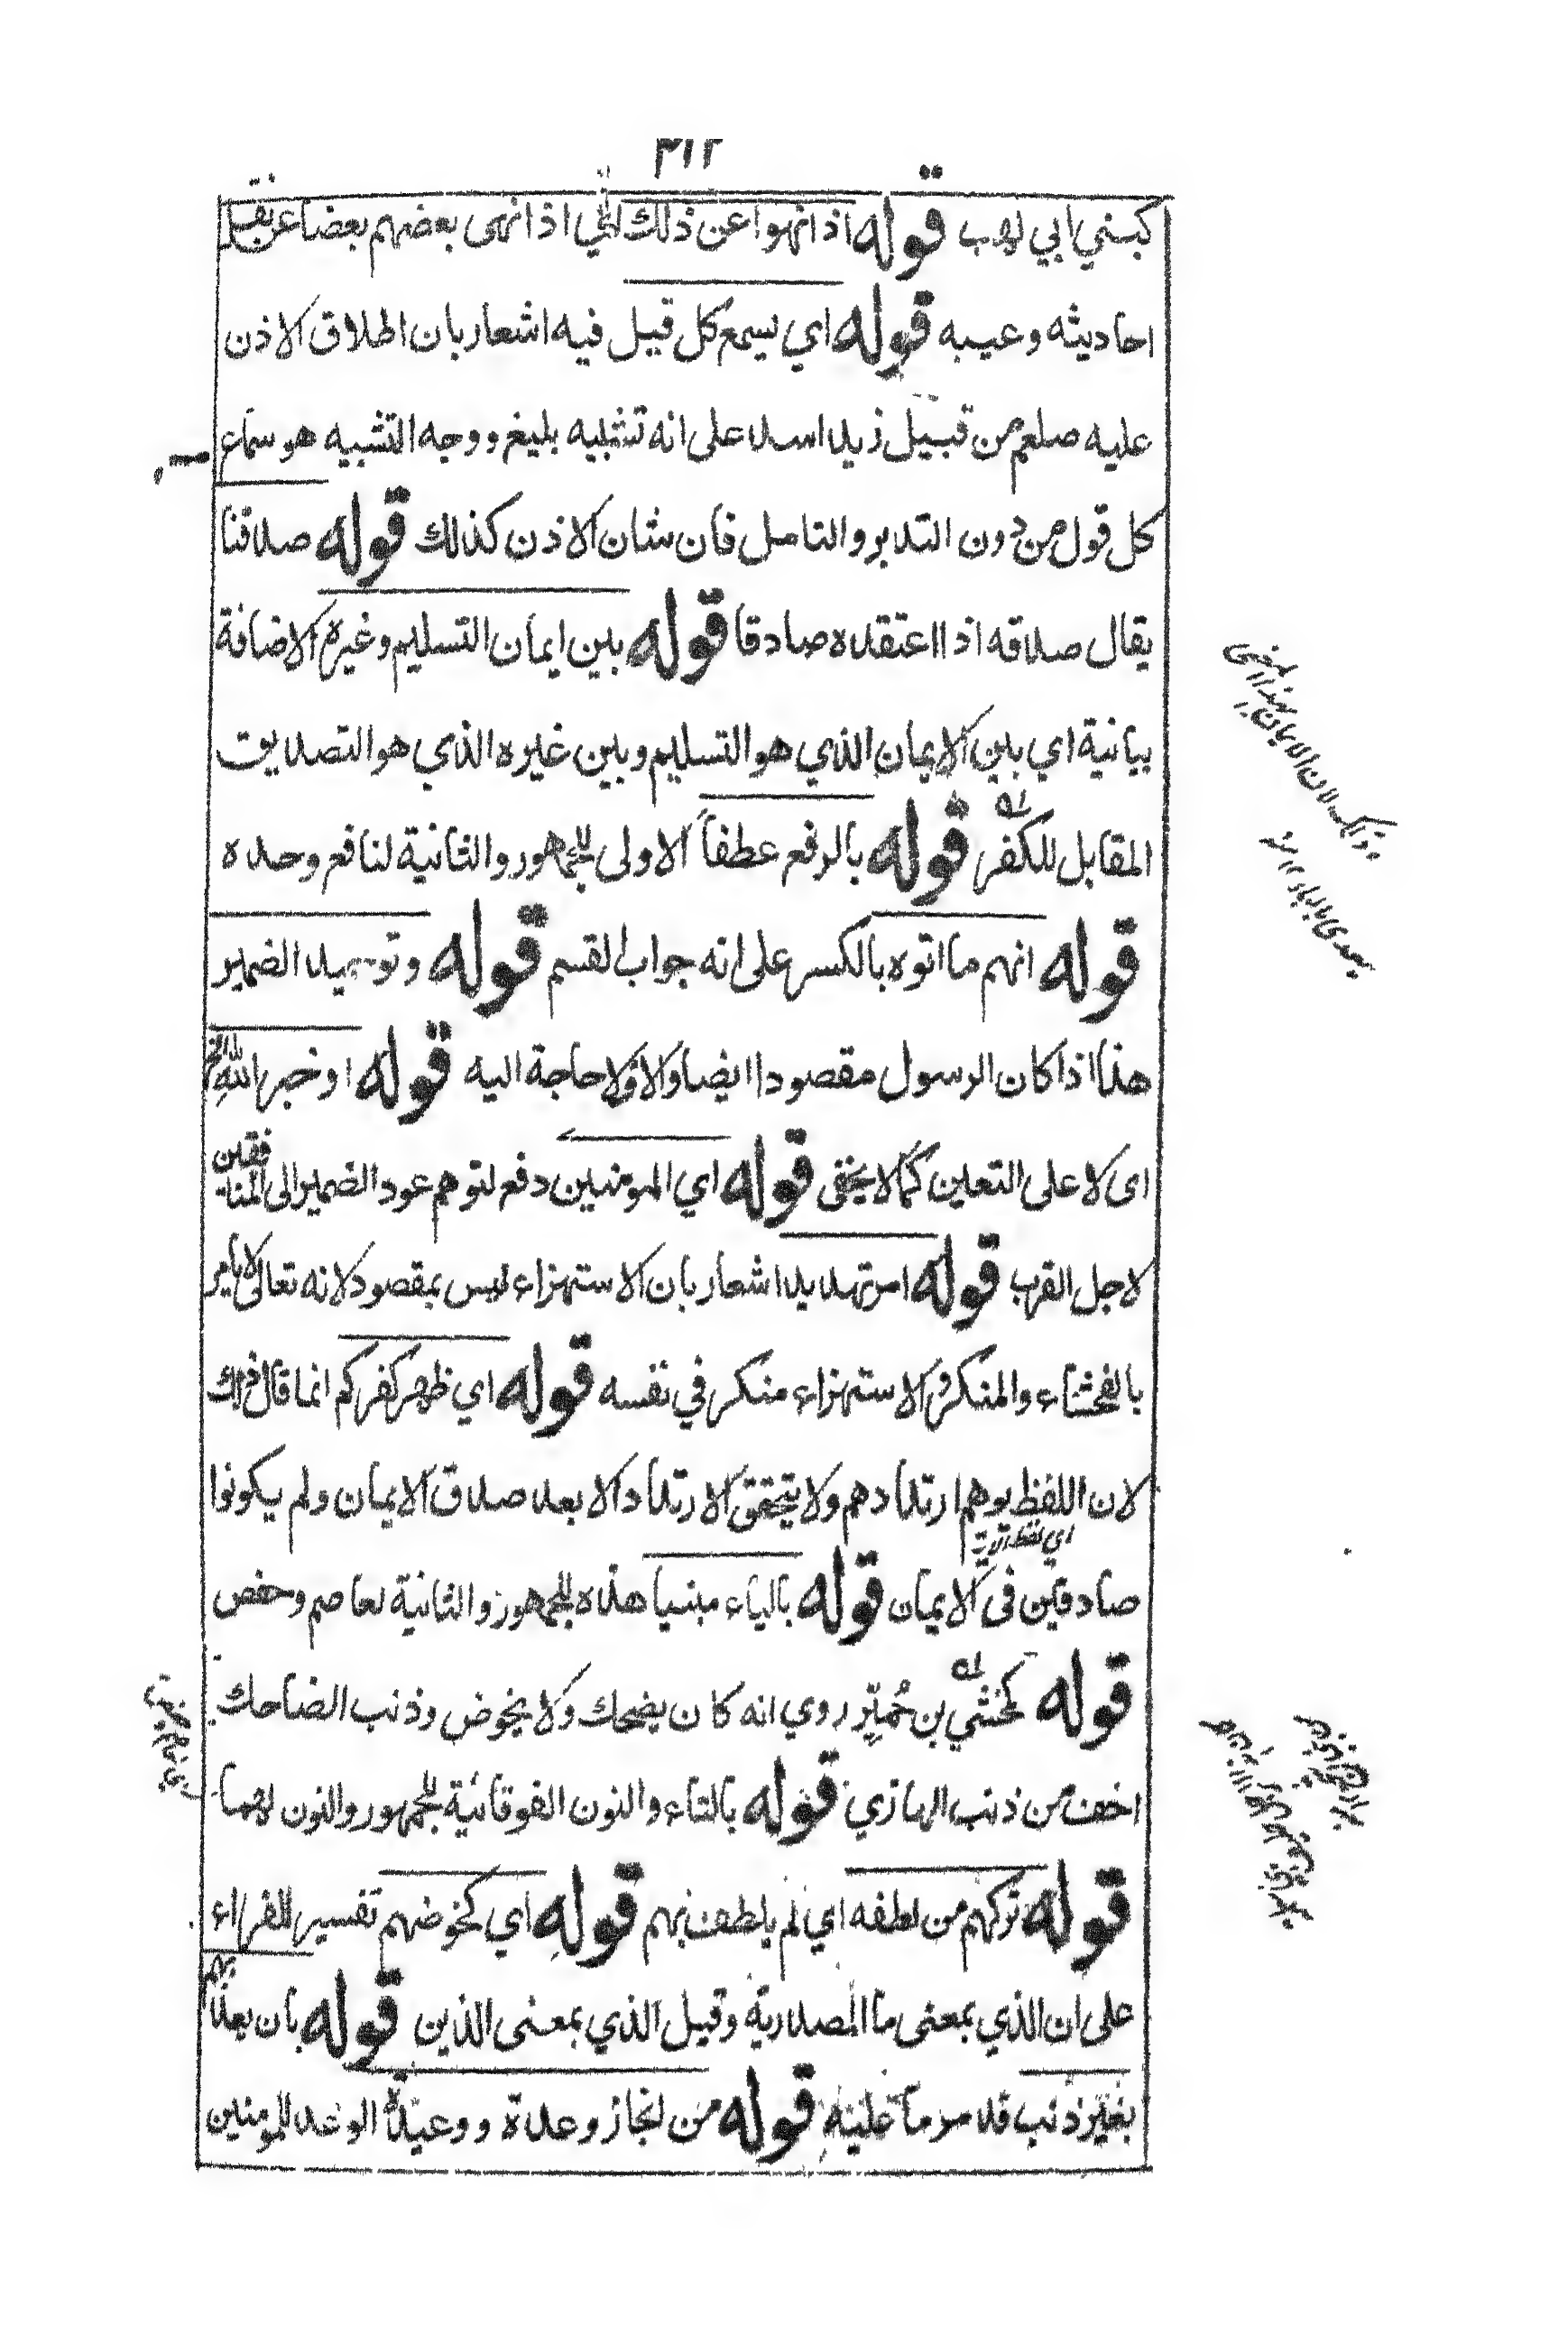 ٣١٢
كبني ابي لهب قوله اذا نهوا عن ذلك اي اذا نهى بعضهم بعضا عن نقل
احاديثه وعيبه قوله اي يسمع كل قيل فيه اشعار بان اطلاق الاذن
عليه صلعم من قبيل زيد اسد على انه تشبيه بليغ ووجه التشبيه هو سماع
كل قول من دون التدبر والتامل فان شان الاذن كذلك قوله صدقنا
يقال صدقه اذا اعتقده صادقا قوله بين ايمان التسليم وغيره الاضافة
بيانية اي بين الايمان الذي هو التسليم وبين غيره الذي هو التصديق
المقابل للكفر قوله بالرفع عطفاً الاولى للجمهور والثانية لنافع وحده
قوله انهم ما اتوه بالكسر على انه جواب القسم قوله وتوحيد الضمير
هذا اذا كان الرسول مقصودا ايضا والا فلا حاجة اليه قوله او خبر الله
اى لا على التعين كما لا يخفى قوله اي المومنين دفع لتوهم عود الضمير الى المنافقين
لاجل القرب قوله امر تهديد اشعار بان الاستهزاء ليس بمقصود لانه تعالى لا يامر
بالفحشاء والمنكر والاستهزاء منكر في نفسه قوله اي ظهر كفركم انما قال ذلك
لان اللفظ يوهم ارتدادهم ولا يتحقق الارتداد الا بعد صدق الايمان ولم يكونوا
صادقين فى الايمان قوله بالياء مبنيا هذه للجمهور والثانية لعاصم وحفص
قوله كمخشي بن حُمَيِّر روي انه كان يضحك ولا يخوض وذنب الضاحك
اخف من ذنب الهازي قوله بالتاء والنون الفوقانية للجمهور والنون لهما
قوله تركهم من لطفه اي لم يلطف بهم قوله اي كخوضهم تفسير للفراء
على ان الذي بمعنى ما المصدرية وقيل الذي بمعنى الذين قوله بان يعذبهم
بغير ذنب قد مر ما عليه قوله من انجاز وعدة ووعيده الوعد للمومنين